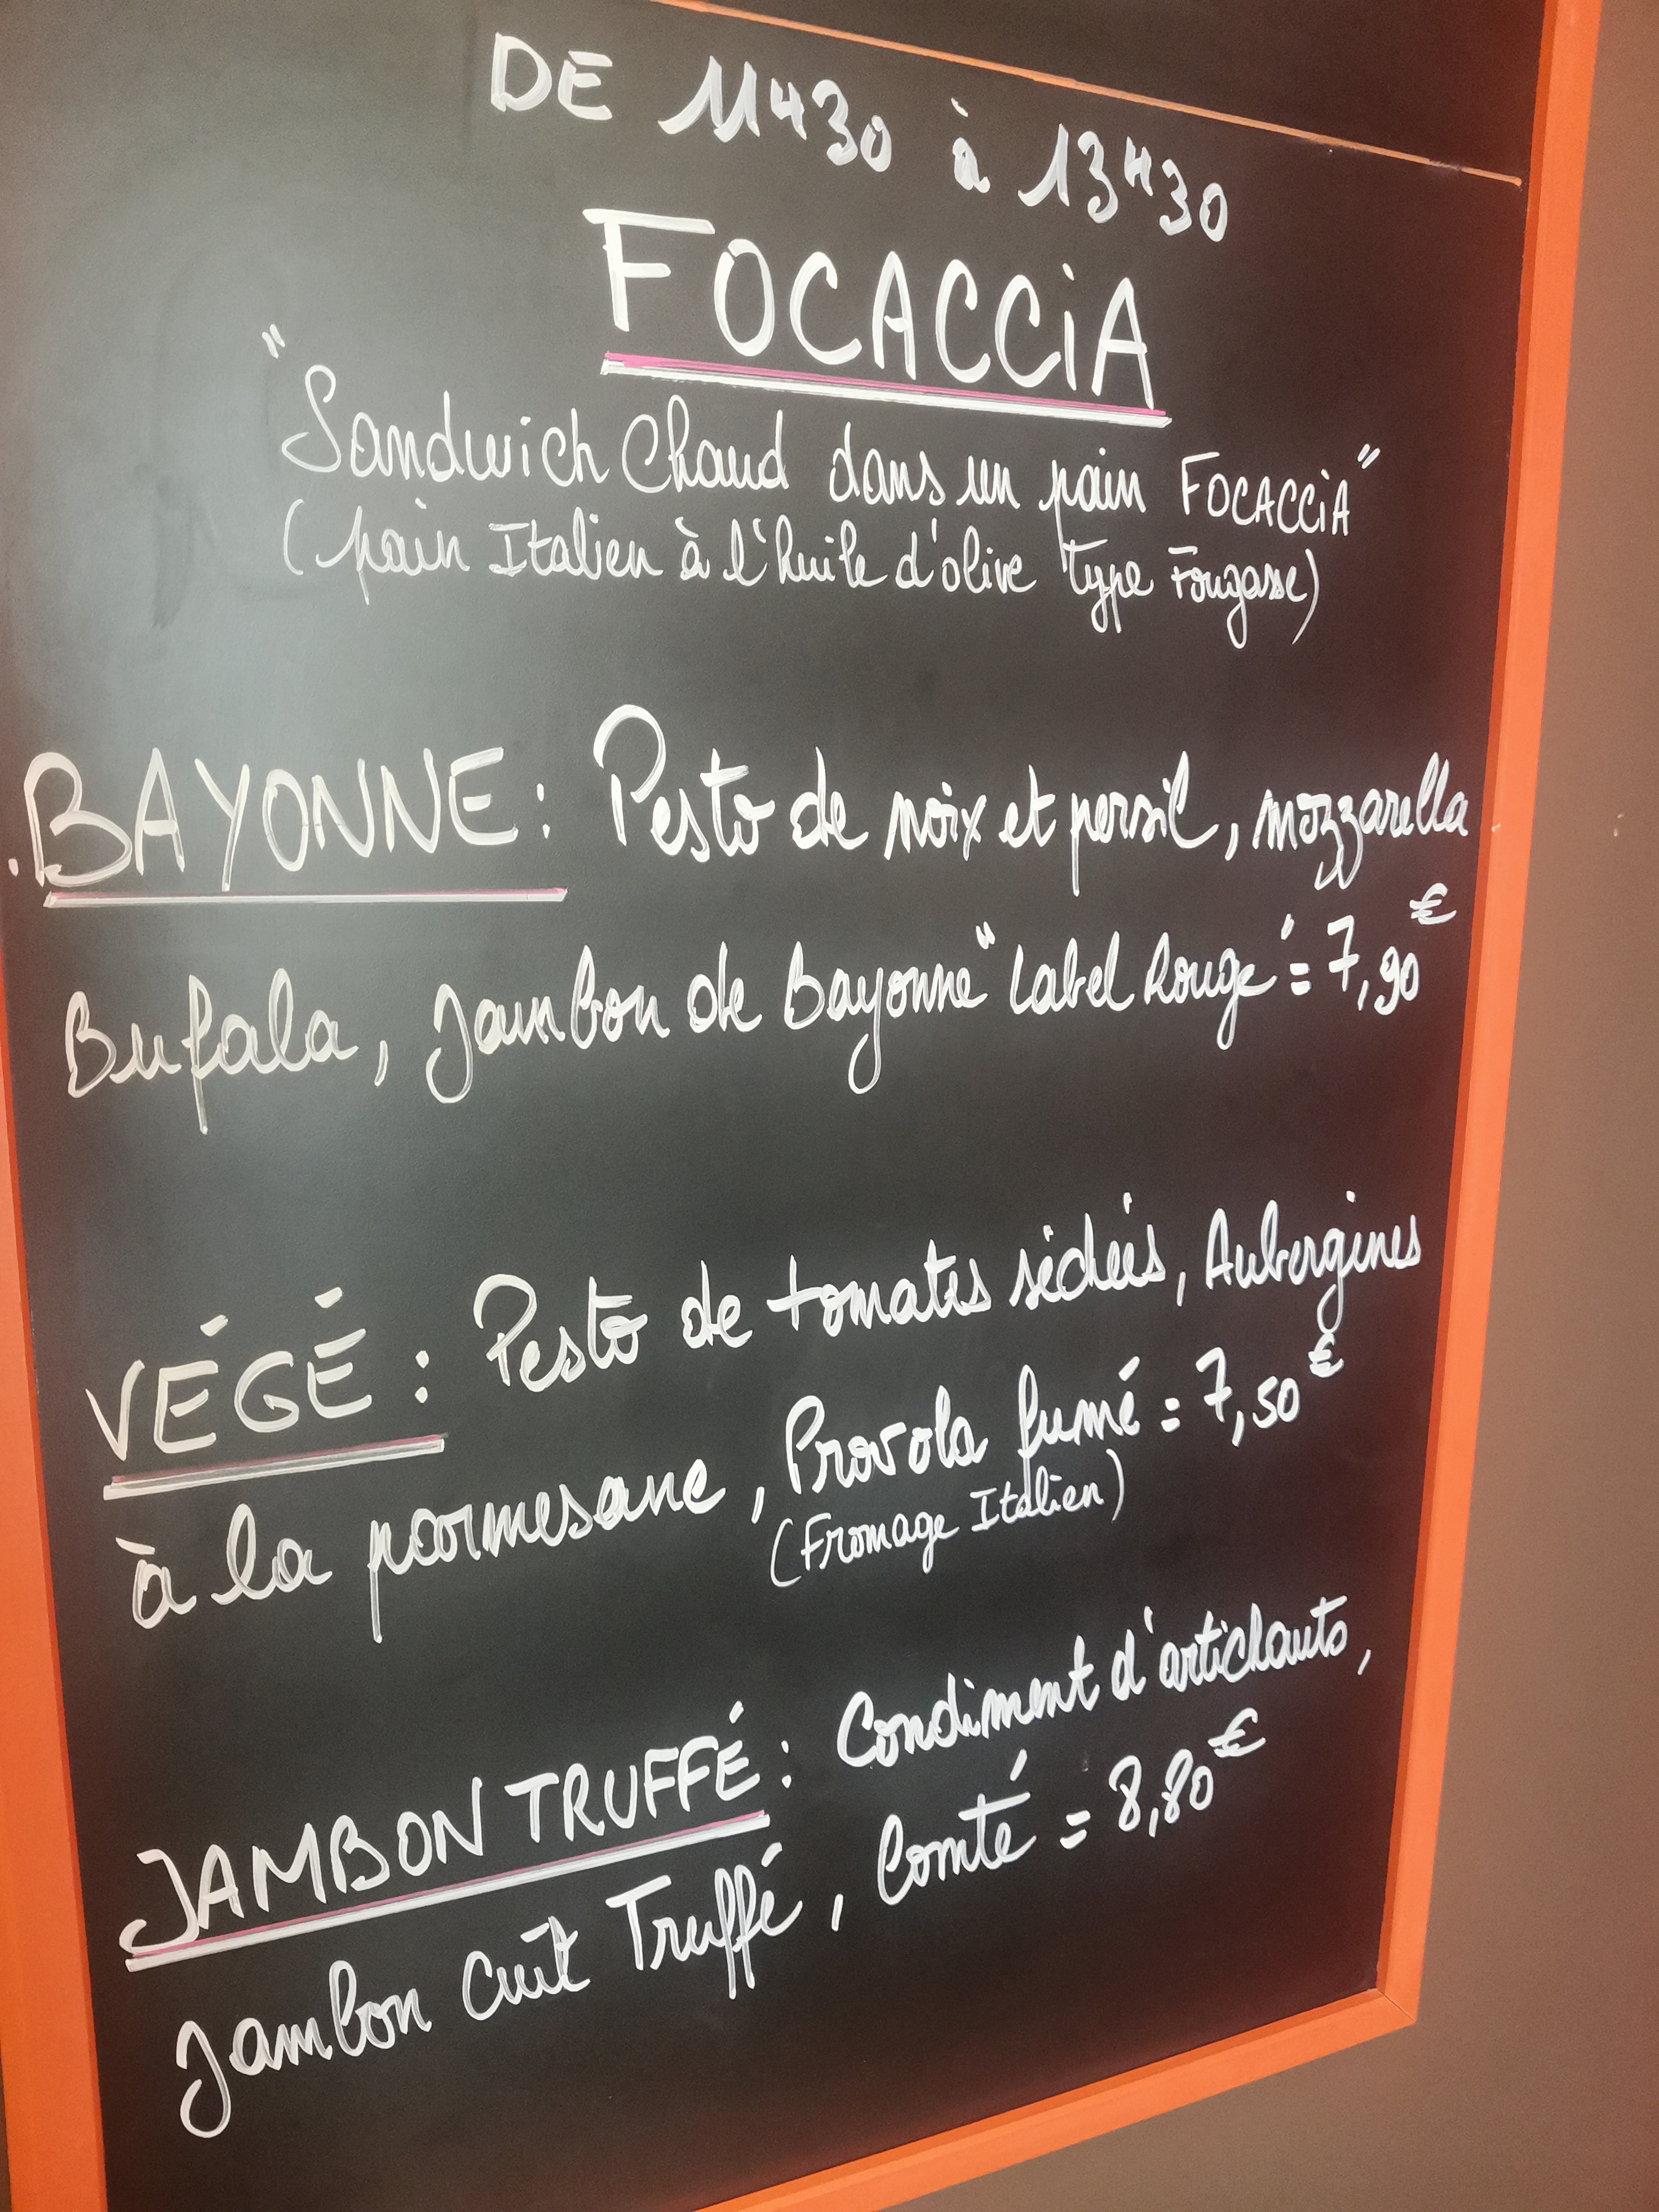 DE 11H30 à 13H30
FOCACCiA
"Sandwich Chaud dans un pain FOCACCiA"
(pain Italien à l'huile d'olive type Fougasse)
.BAYONNE : Pesto de noix et persil, mozzarella
Bufala, Jambon de Bayonne "Label Rouge" = 7,90€
VÉGÉ : Pesto de tomates séchées, Aubergines
à la parmesane, Provola fumé = 7,50€
(Fromage Italien)
JAMBON TRUFFÉ : Condiment d'artichauts,
Jambon cuit Truffé, Comté = 8,80€